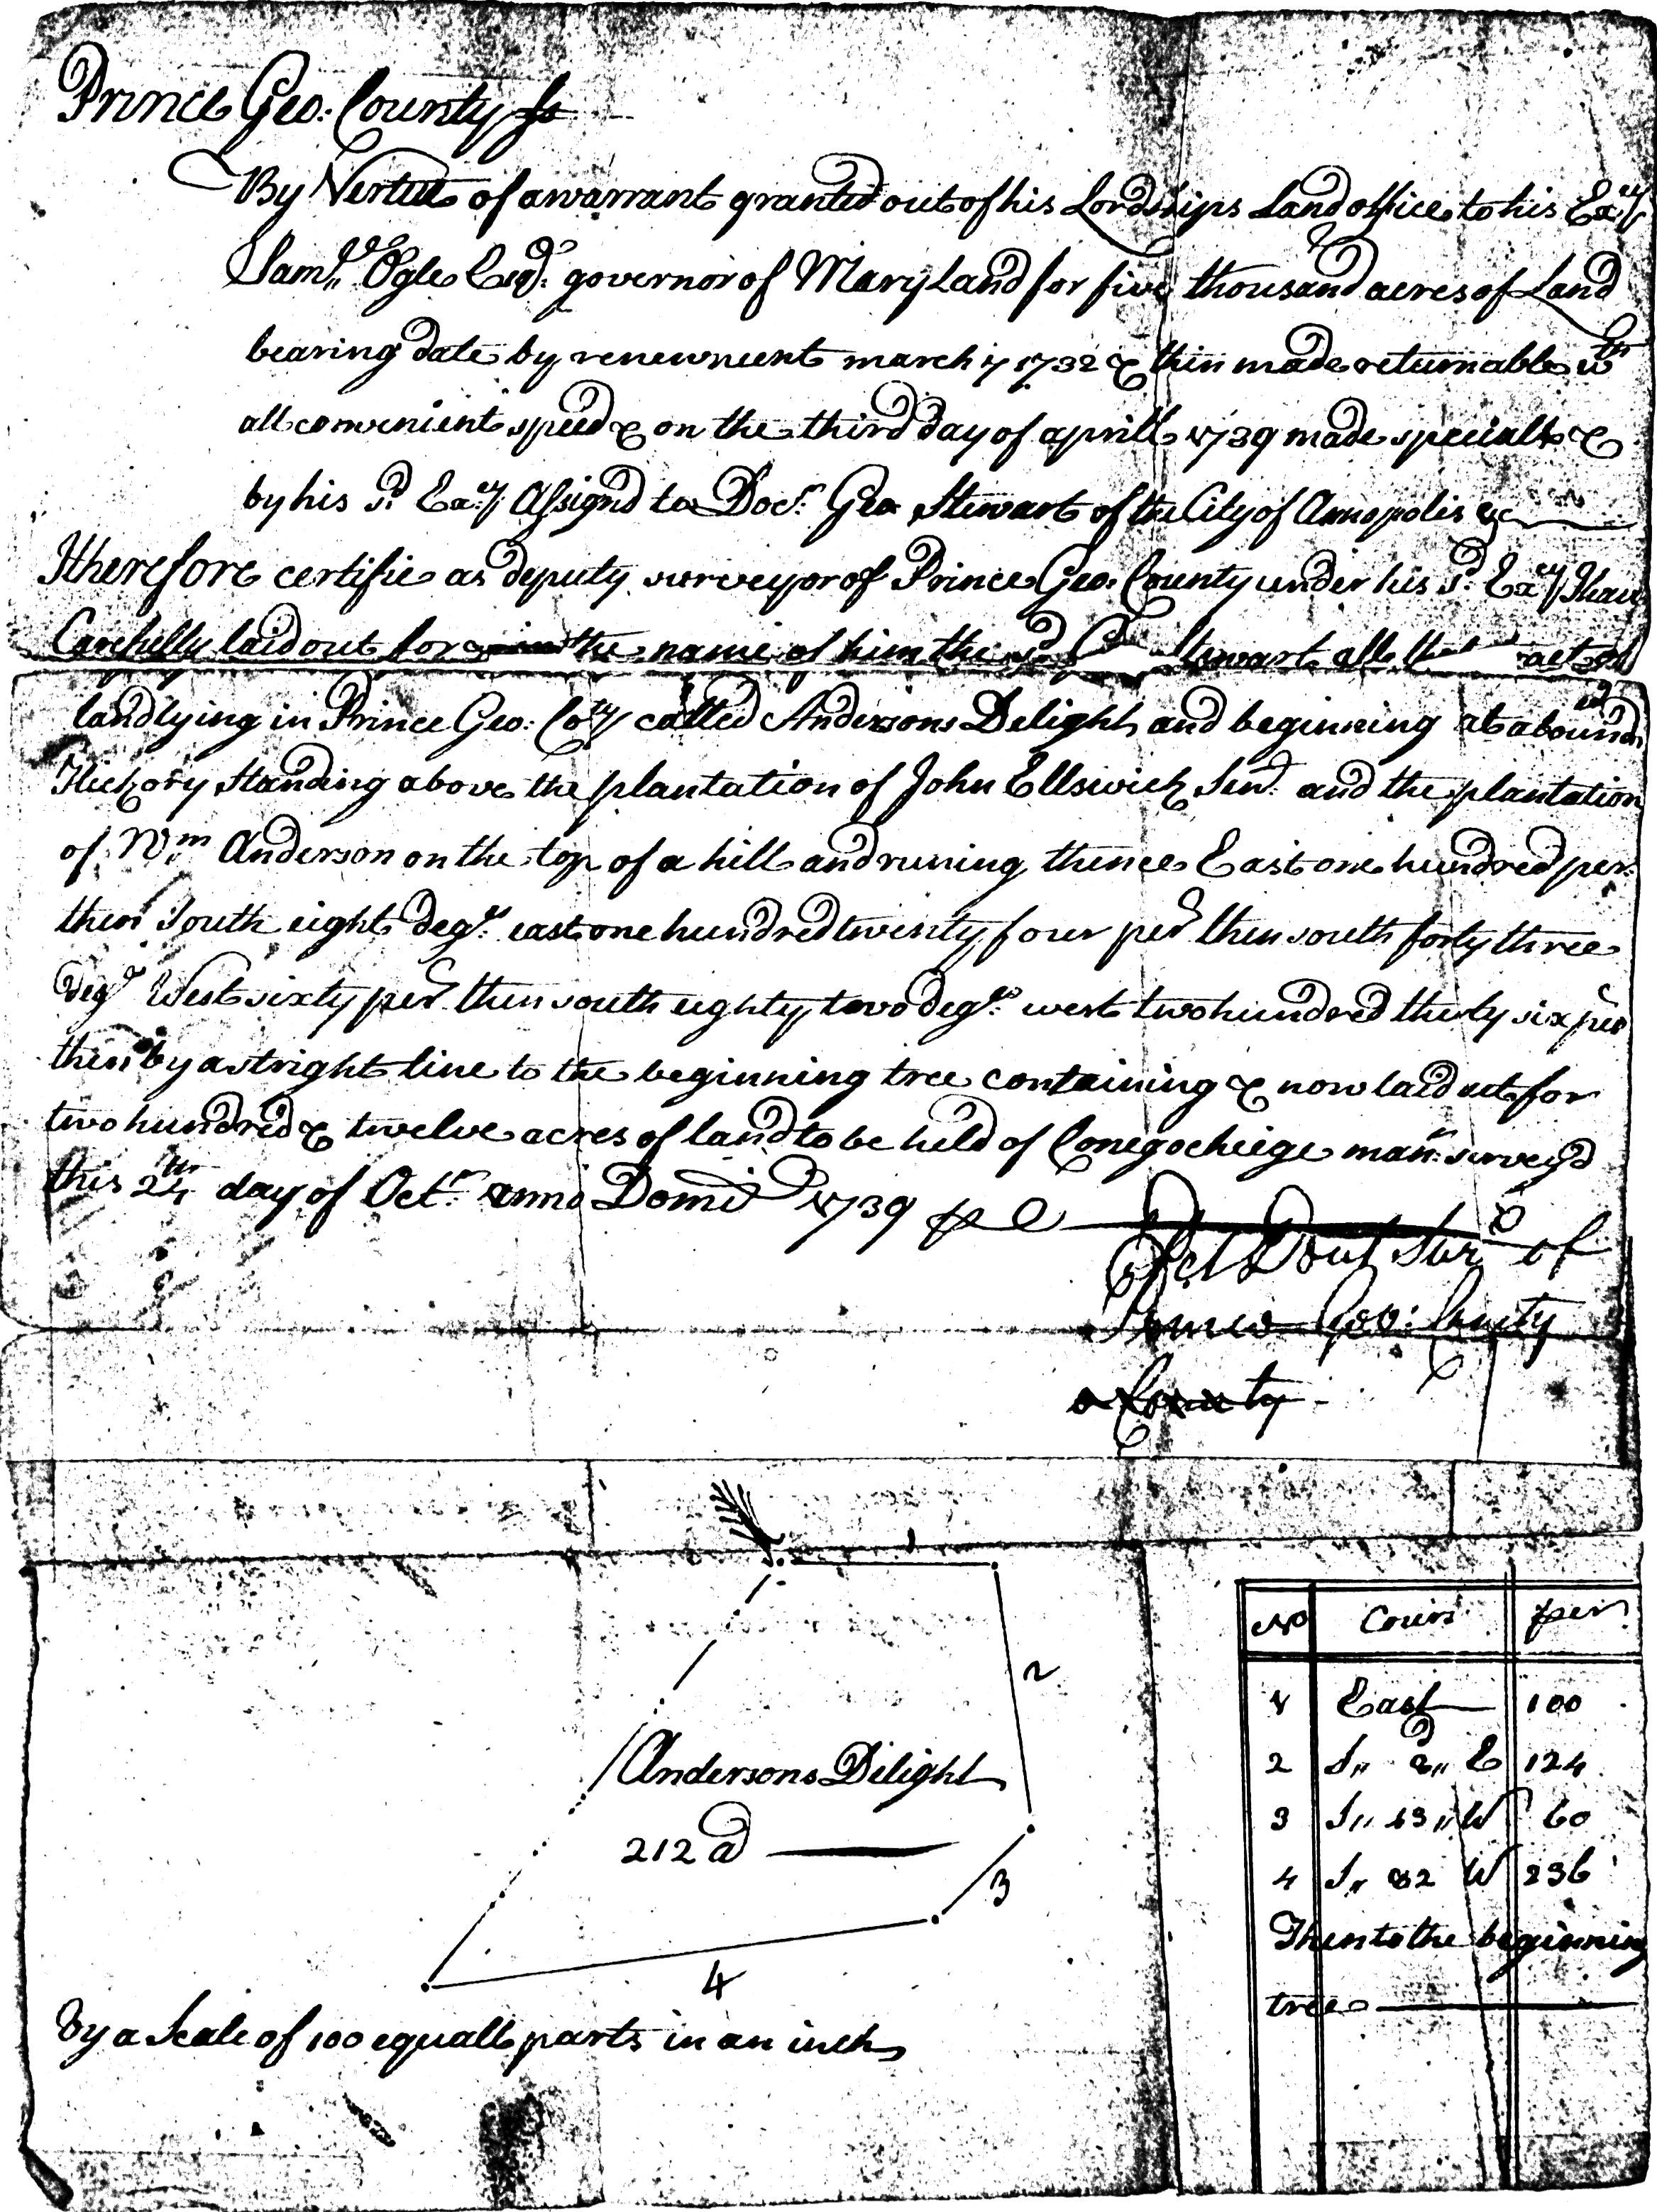 Prince Geo: County ss
By Vertue of a warrant granted out of his Lordships Land office to his Exc:y
Sam:ll Ogle Esqr: governor of MaryLand for five thousand acres of Land
bearing date by renewment march 17 1732 & then made returnable wth
all convenient speed & on the third day of aprill 1739 made speciall &
by his sd. Exc:y Assignd to Docr. Geo Stewart of the City of Annopolis &c
I therefore certifie as deputy surveyor of Prince Geo: County under his sd. Exc:y I have
Carefully laid out for the name of him the sd Stewart all that tract of
land lying in Prince Geo: Coty called Andersons Delight and beginning at a bounded
Hickory standing above the plantation of John Ellswick Senr. and the plantation
of Wm. Anderson on the top of a hill and runing thence East one hundred per:
then South eight degrs. east one hundred twenty four per then south forty three
degr West sixty per then south eighty two degrs. west two hundred thirty six per
then by a stright line to the beginning tree containing & now laid out for
two hundred & twelve acres of land to be held of Conegocheige manr. survey'd
this 24th day of Octr. anno Domi 1739 p
Sur of
Prince Geo: County
County
1
2
Andersons Delight
212 a
3
4
By a Scale of 100 equall parts in an inch
No Cours per
1 East 100
2 S,, 8,, E 124
3 S,, 43,, W 60
4 S,, 82 W 236
Then to the beginning
tree